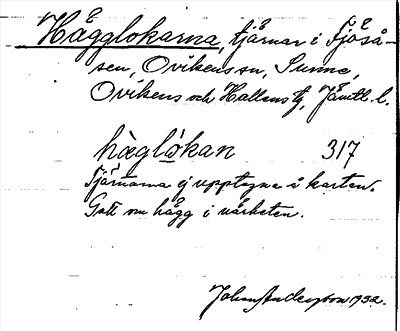 Hågglokarna, tjärnar i Fjöså-
sen, Ovikens sn, Sunne,
Ovikens och Hallens tg, Jämtl. l.
hàglo̊kan 317
Tjärnarna ej upptagna å kartan.
Gott om hågg i närheten.
Johan Anderzson 1932.